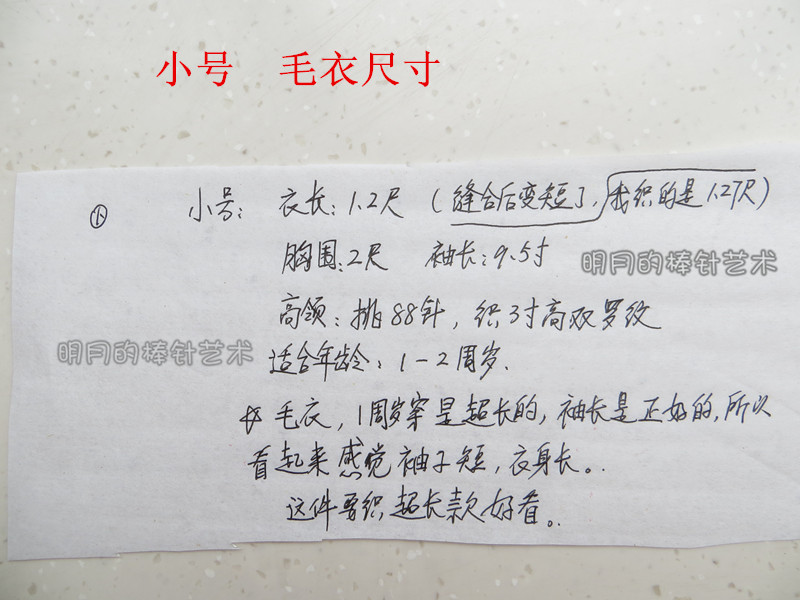 小号 毛衣尺寸
小 小号: 衣长: 1.2尺 (缝合后变短了, 我织的是1.27尺)
胸围: 2尺 袖长: 9.5寸
明月的棒针艺术
高领: 排88针, 织3寸高双罗纹
明月的棒针艺术
适合年龄: 1-2周岁.
毛衣, 1周岁穿是超长的, 袖长是正好的, 所以
看起来感觉袖子短, 衣身长。
这件要织超长款好看。